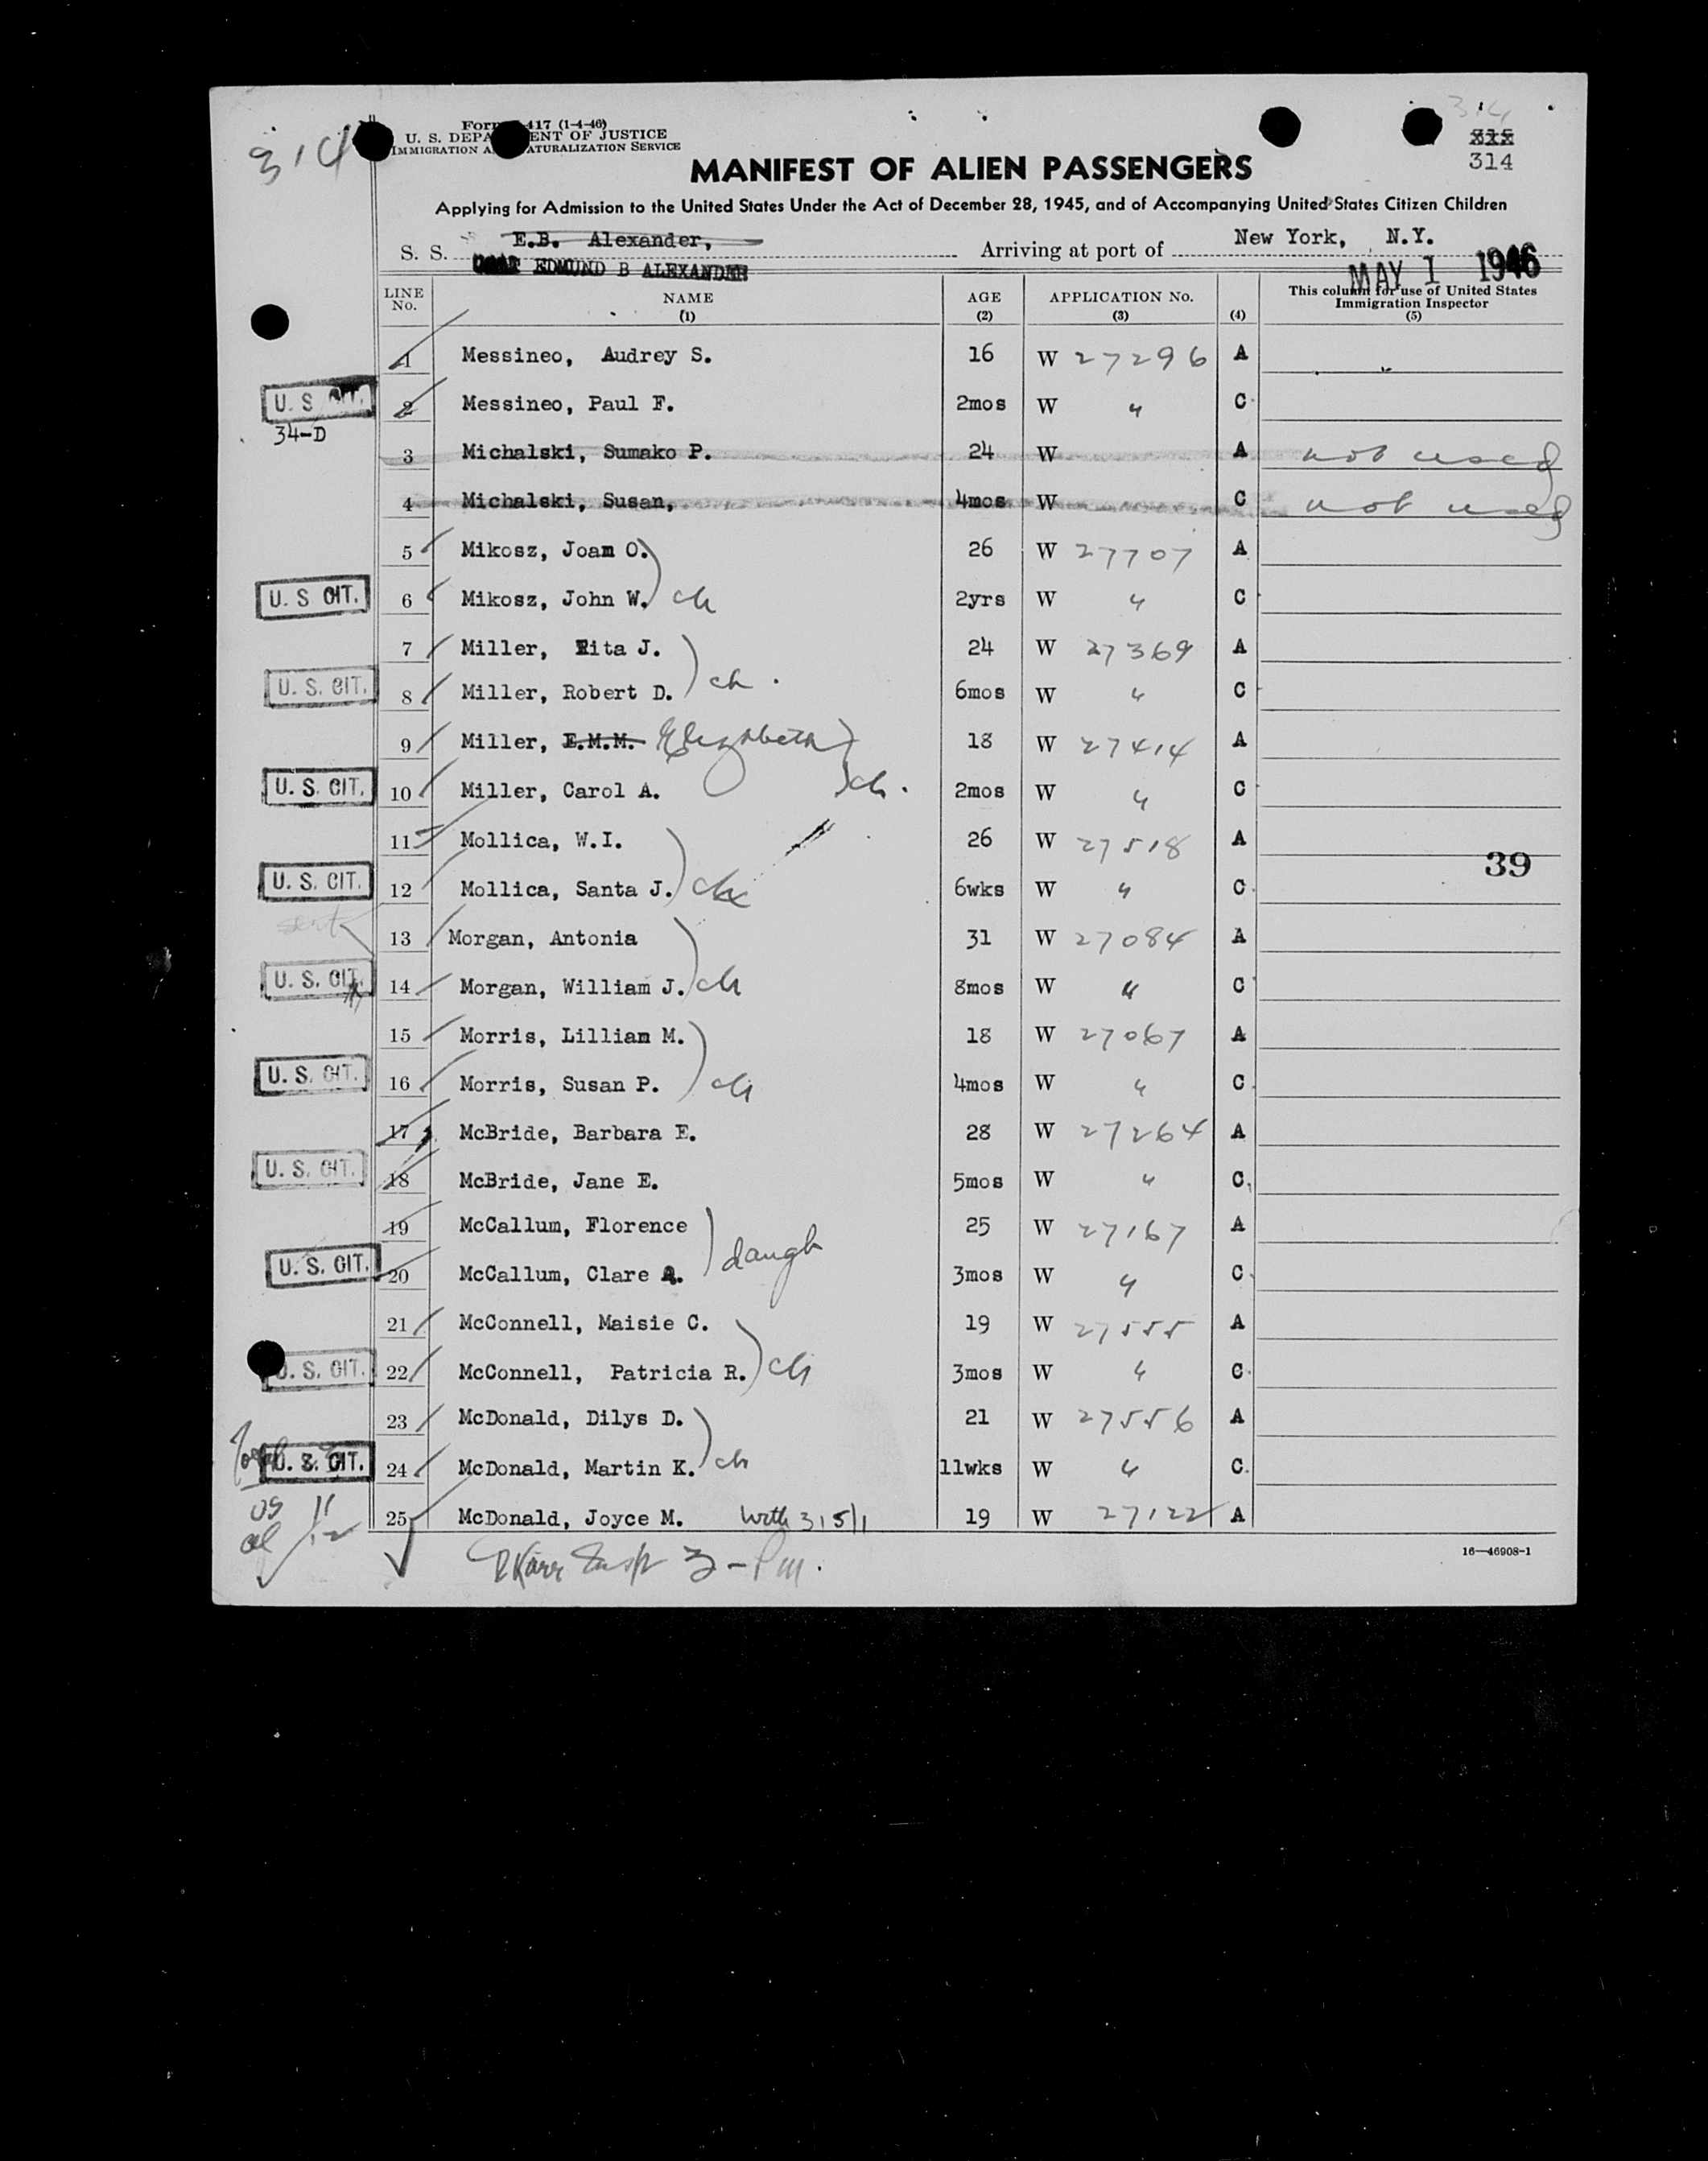 314
Form 417 (1-4-46)
U. S. DEPA ENT OF JUSTICE
IMMIGRATION A ATURALIZATION SERVICE
314
MANIFEST OF ALIEN PASSENGERS
314
Applying for Admission to the United States Under the Act of December 28, 1945, and of Accompanying United States Citizen Children
S. S. E.B. Alexander, Arriving at port of New York, N.Y.
EDMUND B ALEXANDER MAY 1 1946
LINE No. NAME (1) AGE (2) APPLICATION No. (3) (4) This column for use of United States Immigration Inspector (5)
1 Messineo, Audrey S. 16 W 27296 A
U. S CIT. 2 Messineo, Paul F. 2mos W " C
34-D
3 Michalski, Sumako P. 24 W A not used
4 Michalski, Susan, 4mos W C not used
5 Mikosz, Joan O. 26 W 27707 A
U. S CIT. 6 Mikosz, John W. ch 2yrs W " C
7 Miller, Rita J. 24 W 27369 A
U. S. CIT. 8 Miller, Robert D. ch. 6mos W " C
9 Miller, E.M.M. Elizabeth 18 W 27414 A
U. S. CIT. 10 Miller, Carol A. ch. 2mos W " C
11 Mollica, W.I. 26 W 27518 A
39
U. S. CIT. 12 Mollica, Santa J. ch 6wks W " C
13 Morgan, Antonia 31 W 27084 A
U. S. CIT. 14 Morgan, William J. ch 8mos W " C
15 Morris, Lillian M. 18 W 27067 A
U. S. CIT. 16 Morris, Susan P. ch 4mos W " C
17 McBride, Barbara E. 28 W 27264 A
U. S. CIT. 18 McBride, Jane E. 5mos W " C
19 McCallum, Florence 25 W 27167 A
U. S. CIT. 20 McCallum, Clare A. daugh 3mos W " C
21 McConnell, Maisie C. 19 W 27555 A
U. S. CIT. 22 McConnell, Patricia R. ch 3mos W " C
23 McDonald, Dilys D. 21 W 27556 A
U. S. CIT. 24 McDonald, Martin K. ch 11wks W " C
US 11
al 12
25 McDonald, Joyce M. With 315/1 19 W 27122 A
Insp 3-Pm.
16—46908-1